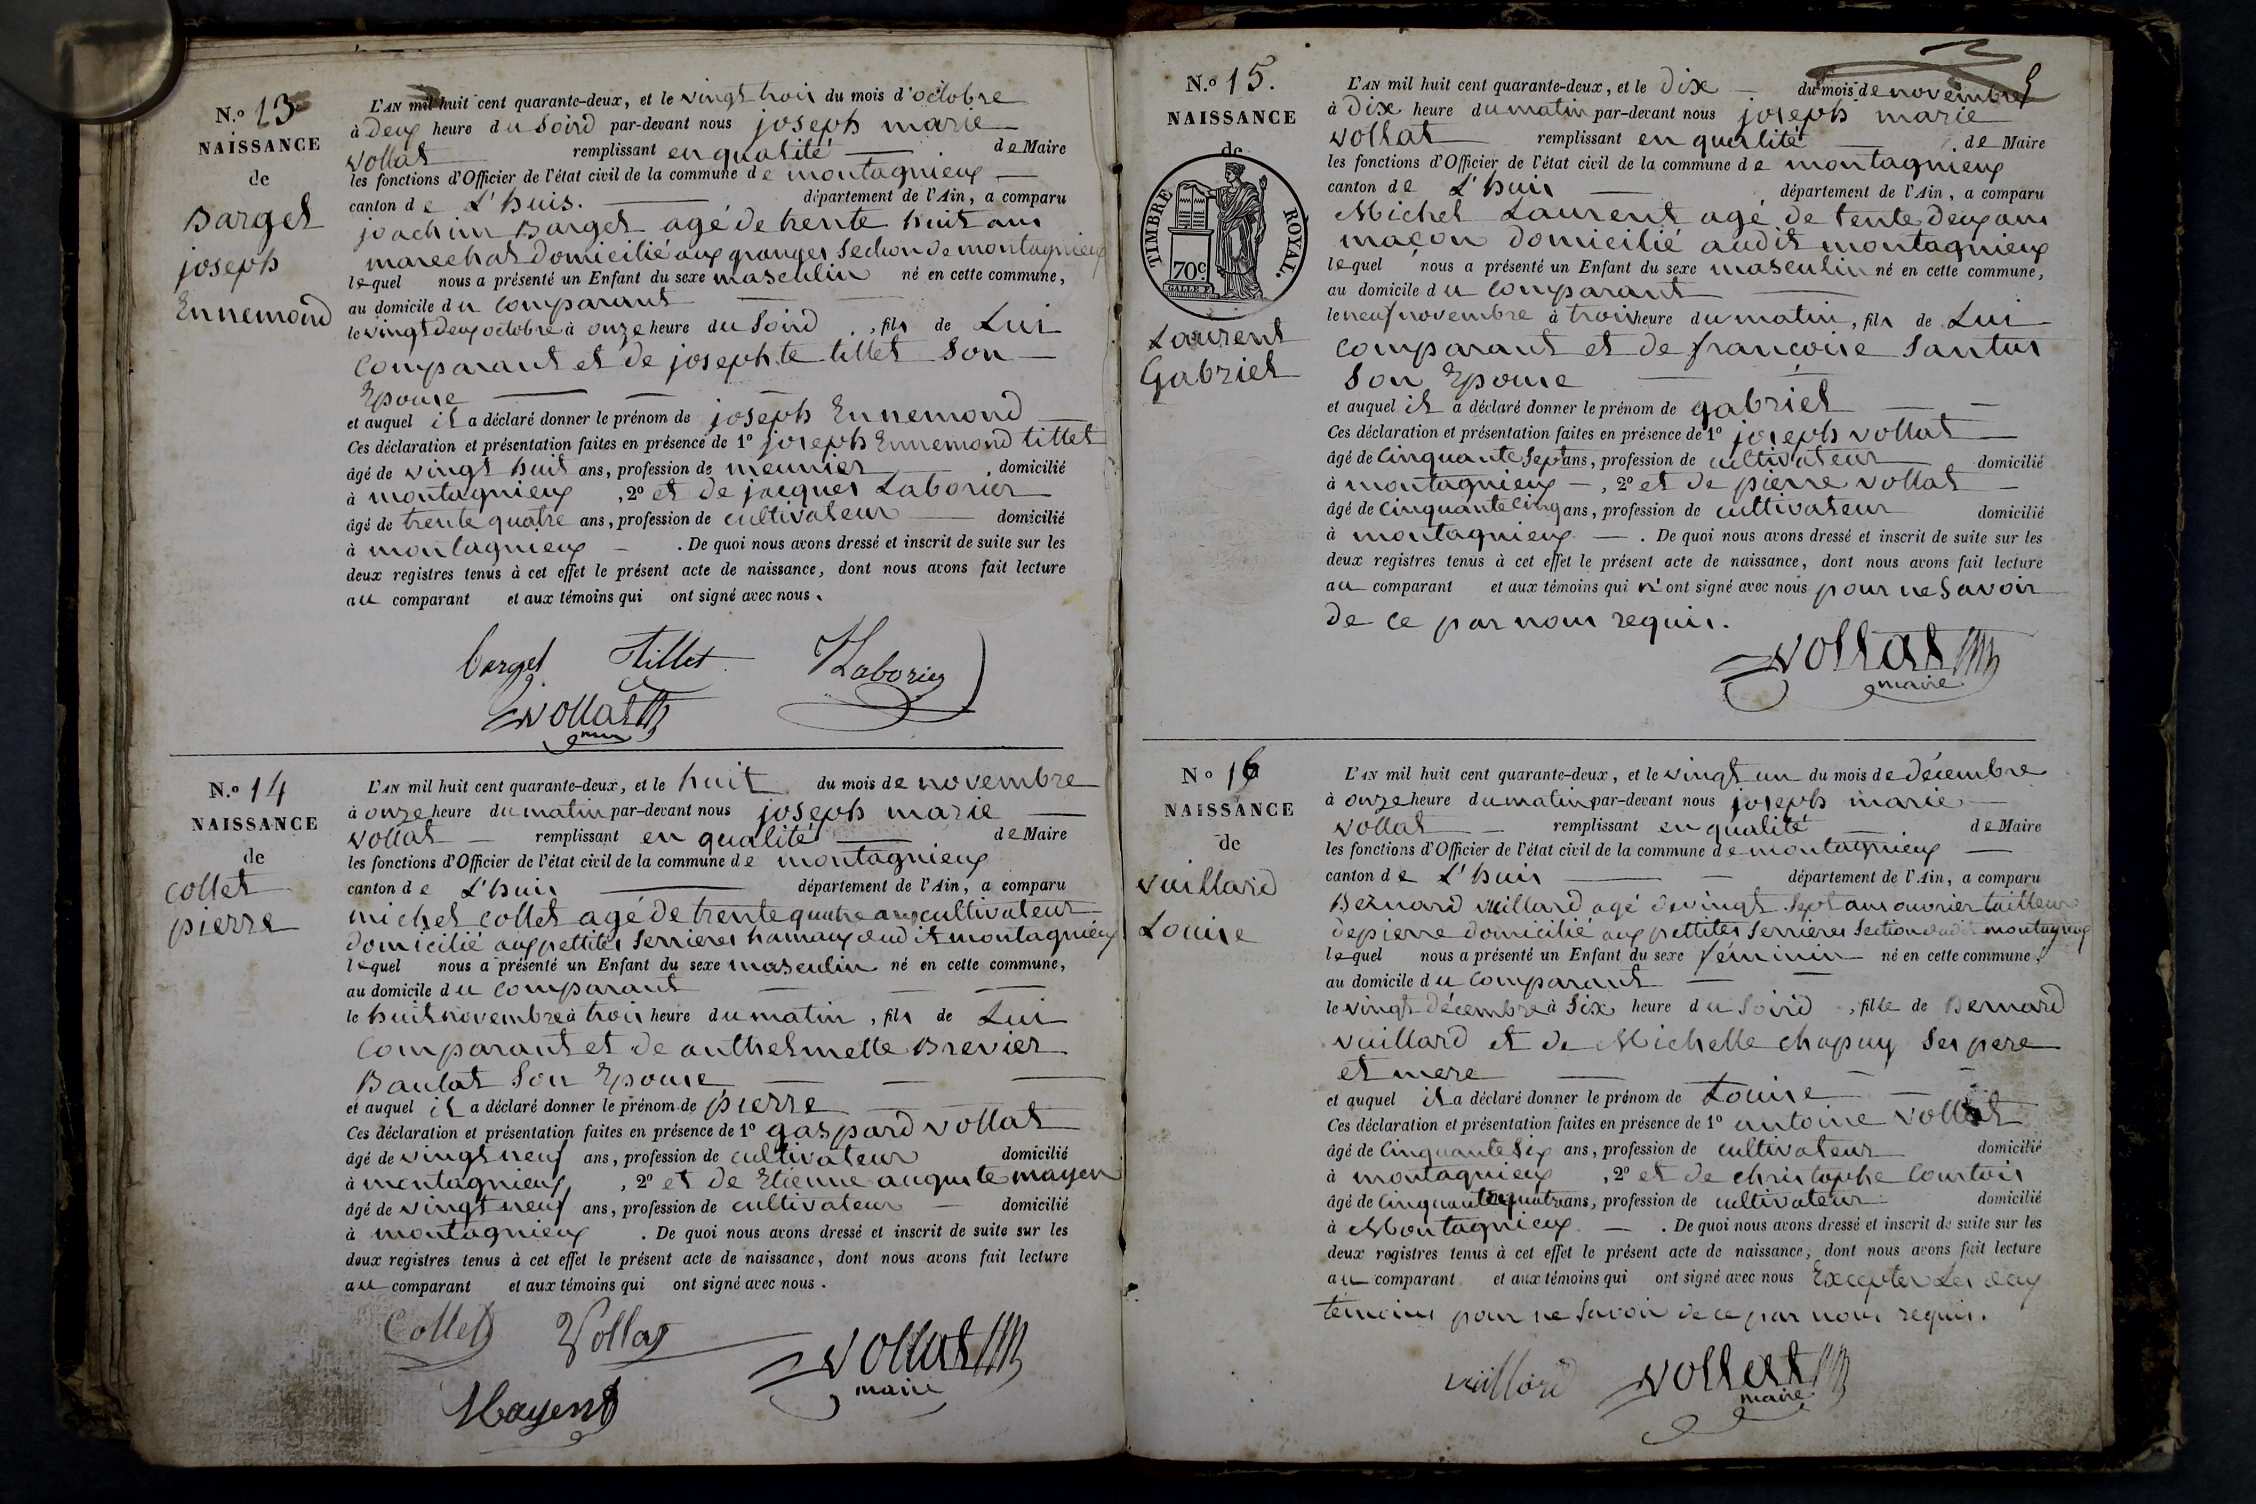 N.o 13
NAISSANCE
de
Barget
joseph
Ennemond
L'AN mil huit cent quarante-deux, et le vingt trois du mois d'octobre
à deux heure du Soird par-devant nous joseph marie
vollat remplissant en qualité de Maire
les fonctions d'Officier de l'état civil de la commune de montagnieux
canton de L'huis. département de l'Ain, a comparu
joachim Barget agé de trente huit ans
marechat domicilié aux granges Section de montagnieux
lequel nous a présenté un Enfant du sexe masculin né en cette commune,
au domicile du Comparant
le vingt deux octobre à onze heure du Soird, fils de Lui
Comparant et de josephte tillet Son
Epouse
et auquel il a déclaré donner le prénom de joseph Ennemond
Ces déclaration et présentation faites en présence de 1o joseph Ennemond tillet
âgé de vingt huit ans, profession de meunier, domicilié
à montagnieux, 2o et de jacques Laborier
âgé de trente quatre ans, profession de cultivateur domicilié
à montagnieux. De quoi nous avons dressé et inscrit de suite sur les
deux registres tenus à cet effet le présent acte de naissance, dont nous avons fait lecture
au comparant et aux témoins qui ont signé avec nous.
barget Tillet Laborier
vollat
N.o 14
NAISSANCE
de
Collet
pierre
L'AN mil huit cent quarante-deux, et le huit du mois de novembre
à onze heure du matin par-devant nous joseph marie
vollat remplissant en qualité de Maire
les fonctions d'Officier de l'état civil de la commune de montagnieux
canton de L'huis département de l'Ain, a comparu
michel collet agé de trente quatre ans cultivateur
domicilié aux pettites Serrieres hamaux dudit montagnieux
lequel nous a présenté un Enfant du sexe masculin né en cette commune,
au domicile du Comparant
le huit novembre à trois heure du matin, fils de Lui
Comparant et de anthelmette Brevier
Baulat Son Epouse
et auquel il a déclaré donner le prénom de pierre
Ces déclaration et présentation faites en présence de 1o gaspard vollat
âgé de vingt neuf ans, profession de cultivateur domicilié
à montagnieux, 2o et de Etienne auguste mayen
âgé de vingt neuf ans, profession de cultivateur domicilié
à montagnieux. De quoi nous avons dressé et inscrit de suite sur les
deux registres tenus à cet effet le présent acte de naissance, dont nous avons fait lecture
au comparant et aux témoins qui ont signé avec nous.
Collet Vollat vollat
maire
Mayent
N.o 15.
NAISSANCE
de
TIMBRE ROYAL.
70c.
Laurent
Gabriel
L'AN mil huit cent quarante-deux, et le dix du mois de novembre
à dix heure du matin par-devant nous joseph marie
vollat remplissant en qualité de Maire
les fonctions d'Officier de l'état civil de la commune de montagnieux
canton de L'huis département de l'Ain, a comparu
Michel Laurent agé de tente deux ans
maçon domicilié audit montagnieux
lequel nous a présenté un Enfant du sexe masculin né en cette commune,
au domicile du Comparant
le neuf novembre à trois heure du matin, fils de Lui
Comparant et de francoise Santus
Son Epouse
et auquel il a déclaré donner le prénom de gabriel
Ces déclaration et présentation faites en présence de 1o joseph vollat
âgé de Cinquante Sept ans, profession de cultivateur domicilié
à montagnieux, 2o et de pierre vollat
âgé de Cinquante Cinq ans, profession de cultivateur domicilié
à montagnieux. De quoi nous avons dressé et inscrit de suite sur les
deux registres tenus à cet effet le présent acte de naissance, dont nous avons fait lecture
au comparant et aux témoins qui n'ont signé avec nous pour ne Savoir
de ce par nous requis.
vollat
maire
No 16
NAISSANCE
de
vuillard
Louise
L'AN mil huit cent quarante-deux, et le vingt un du mois de décembre
à onze heure du matin par-devant nous joseph marie
vollat remplissant en qualité de Maire
les fonctions d'Officier de l'état civil de la commune de montagnieux
canton de L'huis département de l'Ain, a comparu
Bernard vuillard agé de vingt Sept ans ouvrier tailleur
de pierre domicilié aux pettites Serrieres Section dudit montagnieux
lequel nous a présenté un Enfant du sexe féminin né en cette commune,
au domicile du Comparant
le vingt décembre à Six heure du Soird, fille de Bernard
vuillard et de Michelle chapuy Ses pere
et mere
et auquel il a déclaré donner le prénom de Louise
Ces déclaration et présentation faites en présence de 1o antoine vollat
âgé de Cinquante Six ans, profession de cultivateur domicilié
à montagnieux, 2o et de christophe Courtois
âgé de Cinquante quatre ans, profession de cultivateur domicilié
à Montagnieux. De quoi nous avons dressé et inscrit de suite sur les
deux registres tenus à cet effet le présent acte de naissance, dont nous avons fait lecture
au comparant et aux témoins qui ont signé avec nous Excepter Les deux
témoins pour ne Savoir de ce par nous requis.
vuillard vollat
maire